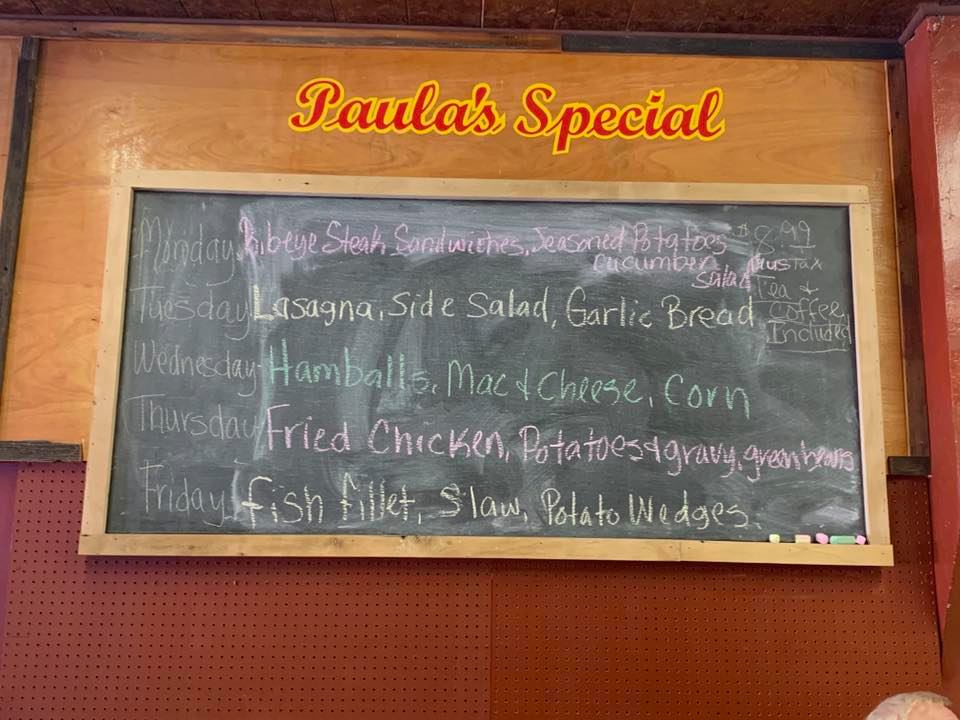 Paula's Special
Monday Ribeye Steak Sandwiches, Seasoned Potatoes
cucumber
salad
$8.99
plus Tax
Tea &
coffee
Included
Tuesday Lasagna, Side Salad, Garlic Bread
Wednesday Hamballs, Mac & Cheese, Corn
Thursday Fried Chicken, Potatoes & gravy, green beans
Friday fish fillet, Slaw, Potato Wedges.